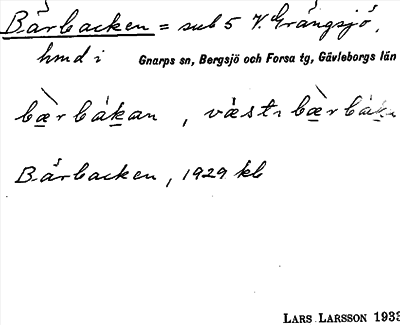 Bärbacken = sub 5 V. Grängsjö,
hmd i Gnarps sn, Bergsjö och Forsa tg, Gävleborgs län
bæ̀rbákan, västr bæ̀rbák
Bärbacken, 1929 kb
LARS LARSSON 1933